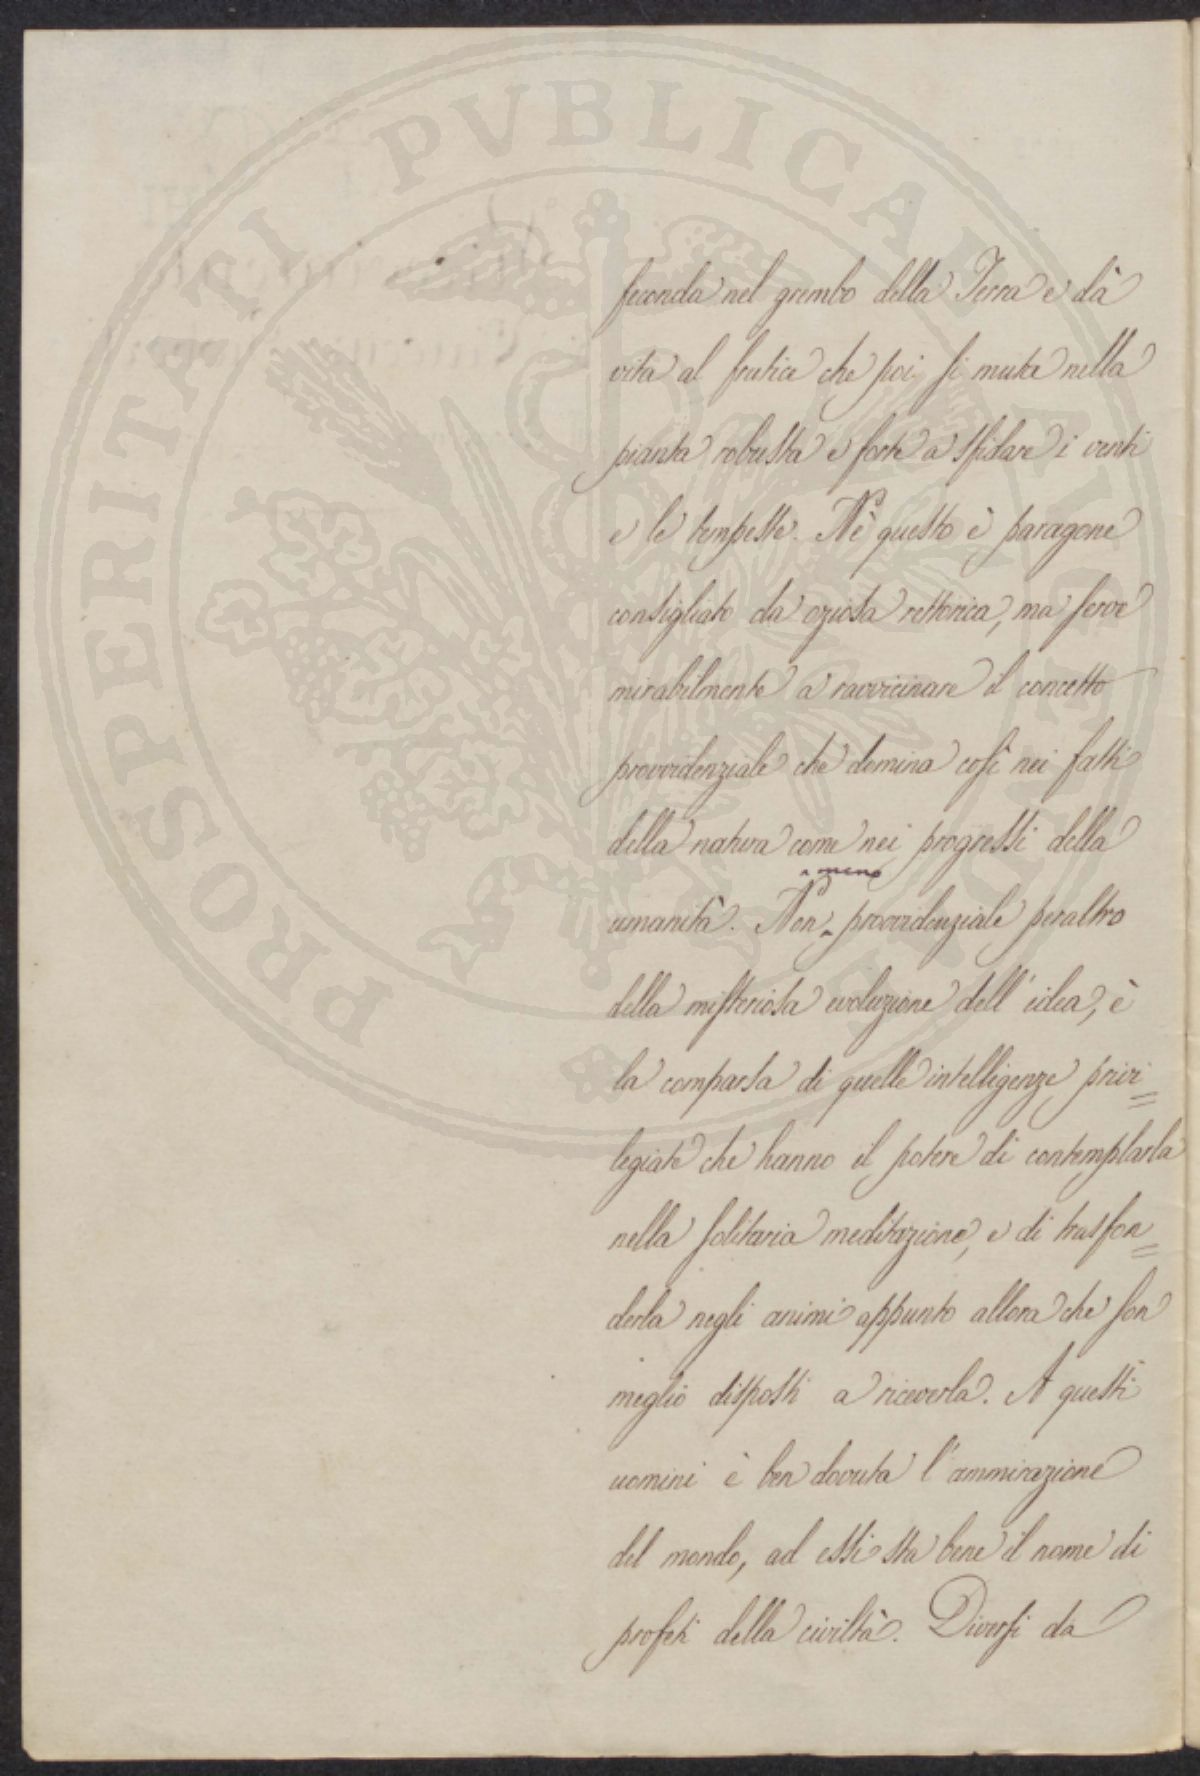 PROSPERITATI PVBLICAE
feconda nel grembo della Terra e dà
vita al frutice che poi si muta nella
pianta robusta e forte a sfidare i venti
e le tempeste. Nè questo è paragone
consigliato da oziosa rettorica, ma serve
mirabilmente a ravvicinare il concetto
provvidenziale che domina così nei fatti
della natura come nei progressi della
meno
umanità. Non provvidenziale peraltro
della misteriosa evoluzione dell'idea, è
la comparsa di quelle intelligenze privi=
legiate che hanno il potere di contemplarla
nella solitaria meditazione, e di trasfon=
derla negli animi appunto allora che son
meglio disposti a riceverla. A questi
uomini è ben dovuta l'ammirazione
del mondo, ad essi sta bene il nome di
profeti della civiltà. Diversi da